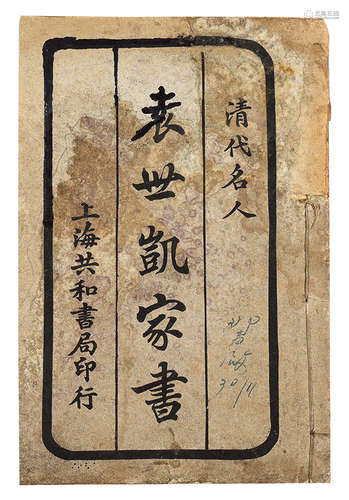 清代名人
袁世凱家書
上海共和書局印行
30/11